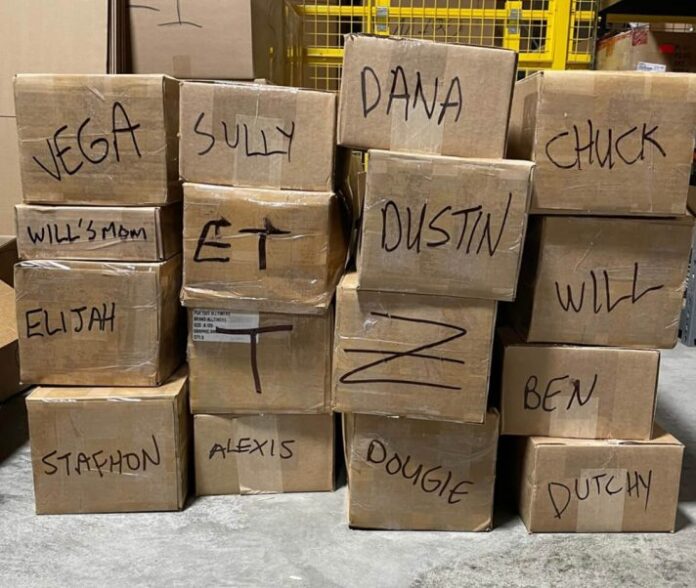 VEGA
WILL'S MOM
ELIJAH
STAFHON
SULLY
ET
T
ALEXIS
DANA
DUSTIN
Z
DOUGIE
CHUCK
WILL
BEN
DUTCHY